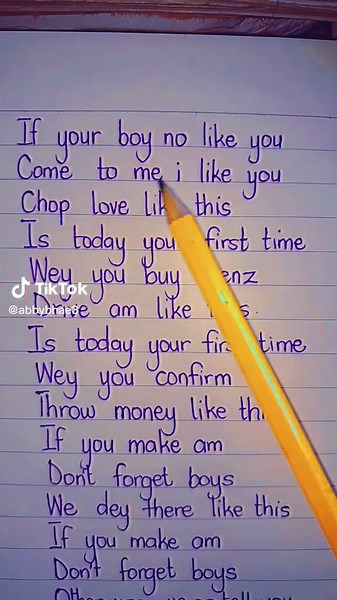 If your boy no like you
Come to me i like you
Chop love like this
Is today you first time
Wey you buy
TikTok
@abbybhae
am like
Is today your time
Wey you confirm
Throw money like
If you make am
Don't forget boys
We dey there like this
If you make am
Don't forget boys